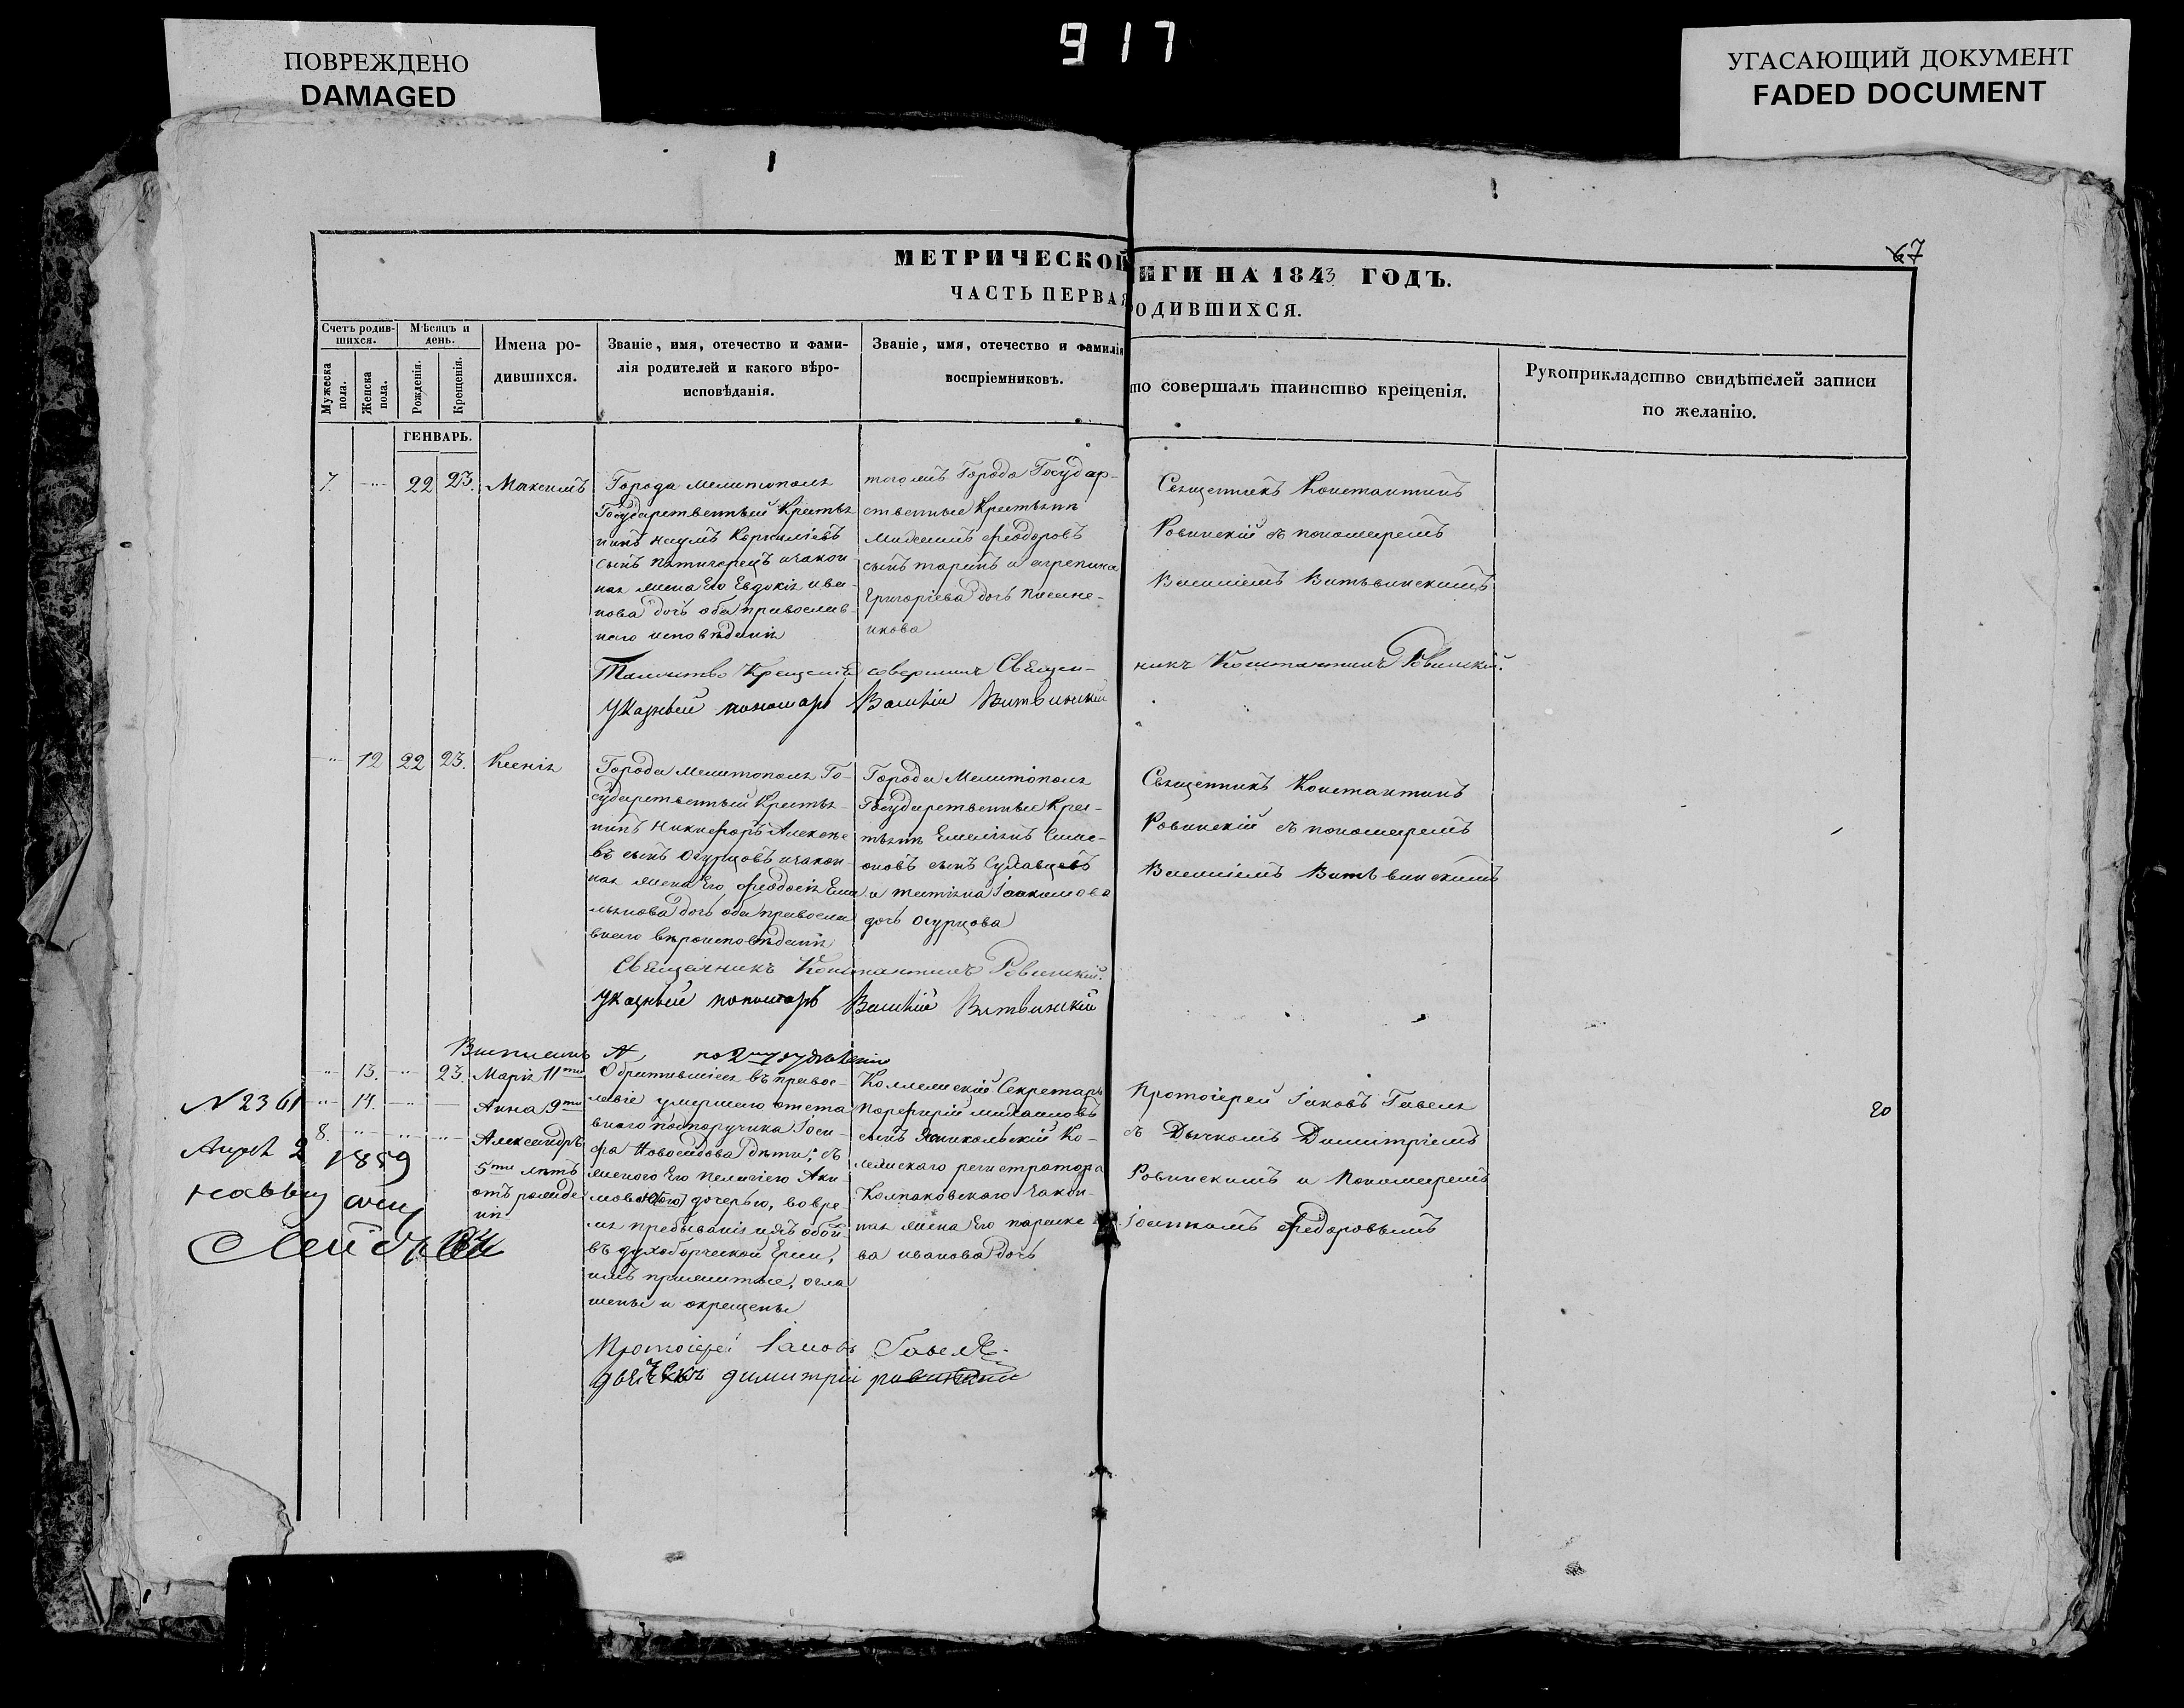 917
ПОВРЕЖДЕНО
DAMAGED
УГАСАЮЩИЙ ДОКУМЕНТ
FADED DOCUMENT
67
МЕТРИЧЕСКОЙ
ИГИ НА 1843 ГОДЪ.
ЧАСТЬ ПЕРВАЯ
ОДИВШИХСЯ.
Счетъ родив-
шихся.
Мужеска
пола.
Женска
пола.
Мѣсяцъ и
день.
Рожденія.
Крещенія.
Имена ро-
дившихся.
Званіе, имя, отечество и фами-
лія родителей и какого вѣро-
исповѣданія.
Званіе, имя, отечество и фамилія
воспріемниковъ.
то совершалъ таинство крещенія.
Рукоприкладство свидѣтелей записи
по желанію.
ГЕНВАРЬ.
7. 22 23. Максимъ
Города Мелитополя
Государственный Крестья
нинъ Наумъ
сынъ Пятигорецъ и закон
ная жена Его Евдокія Ива
нова дочь оба православ
наго исповѣданія
того жъ Города Государ-
ственные Крестьяне
Феодоровъ
сынъ и агрепина
Григоріева дочь
икова
Священникъ Константинъ
Ровинскій съ пономаремъ
Василіемъ Витвинскимъ
Таинство Крещенія совершилъ Священ-
никъ Константинъ Ровинскій.
Указный пономарь Василій Витвинскій
12 22 23. Ксенія
Города Мелитополя Го-
сударственный Крестья-
нинъ Никифоръ Алексѣе
въ сынъ Огурцовъ и закон-
ная жена Его Феодосія Еме
льянова дочь оба правосла
внаго вѣроисповѣданія
Города Мелитополя
Государственные Крес-
тьяне Емеліянъ Симе-
оновъ сынъ
и Татіана Іоакимова
дочь Огурцова
Священникъ Константинъ
Ровинскій съ пономаремъ
Василіемъ Витвинскимъ
Священникъ Константинъ Ровинскій.
Указный пономарь Василій Витвинскій
по 2му отдѣленію
13. 23. Марія 11ти
14. Анна 9ти
8. Александръ
5ти лѣтъ
отъ рожде
нія
N 2361
2 1859
Обратившіеся въ право-
славіе умершаго отста
внаго Подпоручика Іоси
фа Новосѣдова дѣти; съ
женою Его Пелагіею Аки
мовою дочерью, во вре
мя пребыванія ихъ обои
въ духоборческой Ереси,
имъ прижитые, огла
шены и окрещены
Коллежскій Секретарь
Порфирій Михаиловъ
сынъ Ко-
лежскаго регистратора
Колпаковскаго закон-
ная жена Его параске
ва иванова дочь
Протоіерей Іаковъ Гавеля
съ Дьячкомъ Димитріемъ
Ровинскимъ и Пономаремъ
Іоанномъ Федоровымъ
20
Протоіерей Іаковъ Гавеля.
дьячекъ димитрій ровинскій